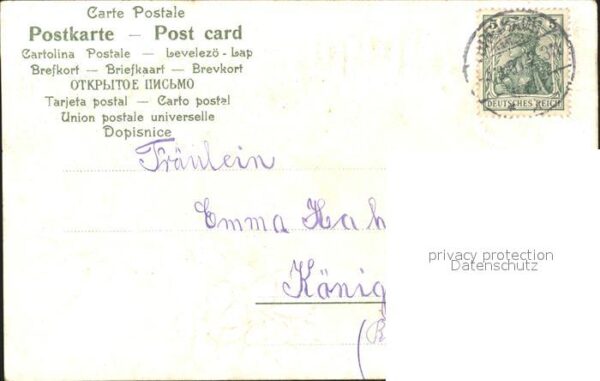 Carte Postale
Postkarte — Post card
Cartolina Postale — Levelező-Lap
Brefkort — Briefkaart — Brevkort
ОТКРЫТОЕ ПИСЬМО
Tarjeta postal — Carto postal
Union postale universelle
Dopisnice
5 5
DEUTSCHES REICH
Fräulein
Emma Hah
König
(B
privacy protection
Datenschutz